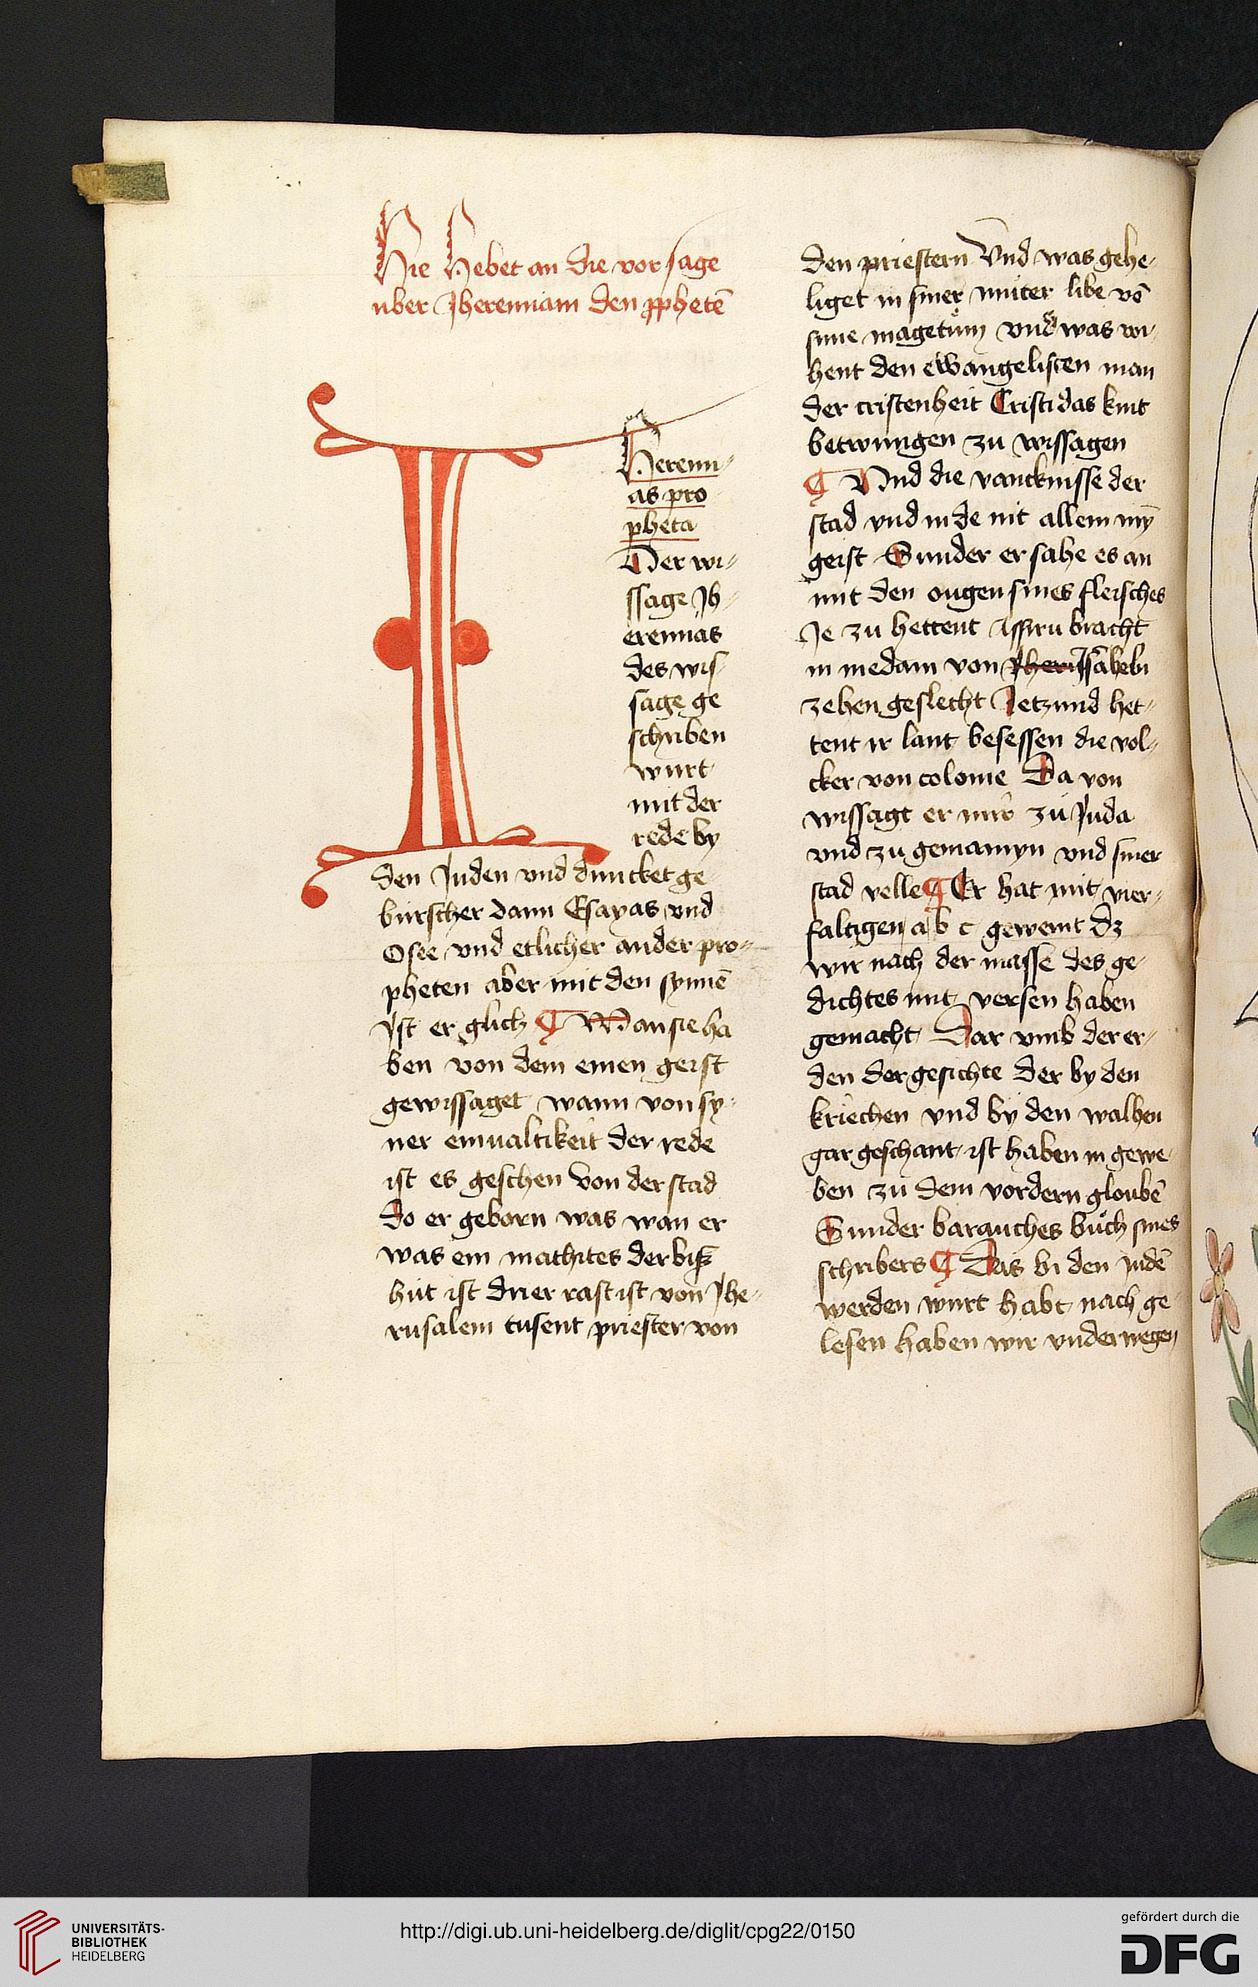 Hie Hebet an die vor sage
uber Jheremiam den ppheten̄
I
Heremi-
as pro
pheta
Der wi-
ssage Jh-
eremias
des wis-
sage ge
schriben
wurt
mit der
rede by
den Juden vnd duncket ge-
bürscher dann Esayas vnd
Osee vnd etlicher ander pro-
pheten aber mit den synnē
Ist er glich ¶ Wan sie ha
ben von dem einen geist
gewissaget wann von sy-
ner einualtikeit der rede
ist es geschen von der stad
do er geborn was wan er
was ein mathites der biß
hüt ist drier rast ist von Jhe-
rusalem tusent priester von
den priestern Vnd was gehe-
liget in siner müter libe vō
sine magetům vnd was wi-
hent den ewangelisten man
der cristenheit Cristi das kint
betwungen zu wissagen
¶ Vnd die vancknisse der
stad vnd inde nit allein mÿ
geist Sunder er sahe es an
mit den ougen sines fleisches
Je zu hettent Assiru bracht
in medam von Jsabeln
zehen geslecht Jetzund het-
tent ir lant besessen die vol-
cker von colonie Da von
wissagt er nür zü Juda
vnd zu gemamyn vnd siner
stad velle ¶ Er hat mit vier-
faltigen a b c geweint dz
wir nach der masse des ge-
dichtes mit versen haben
gemacht Dar vmb der er-
den der gesichte der by den
kriechen vnd by den walhen
gar geschant ist haben in gewe-
ben zü dem vordern gloubē
Sunder barauches bůch sines
schribers ¶ Das bi den Judē
werden wurt habt nach ge-
lesen haben wir vnderwegen
UNIVERSITÄTS-
BIBLIOTHEK
HEIDELBERG
http://digi.ub.uni-heidelberg.de/diglit/cpg22/0150
gefördert durch die
DFG